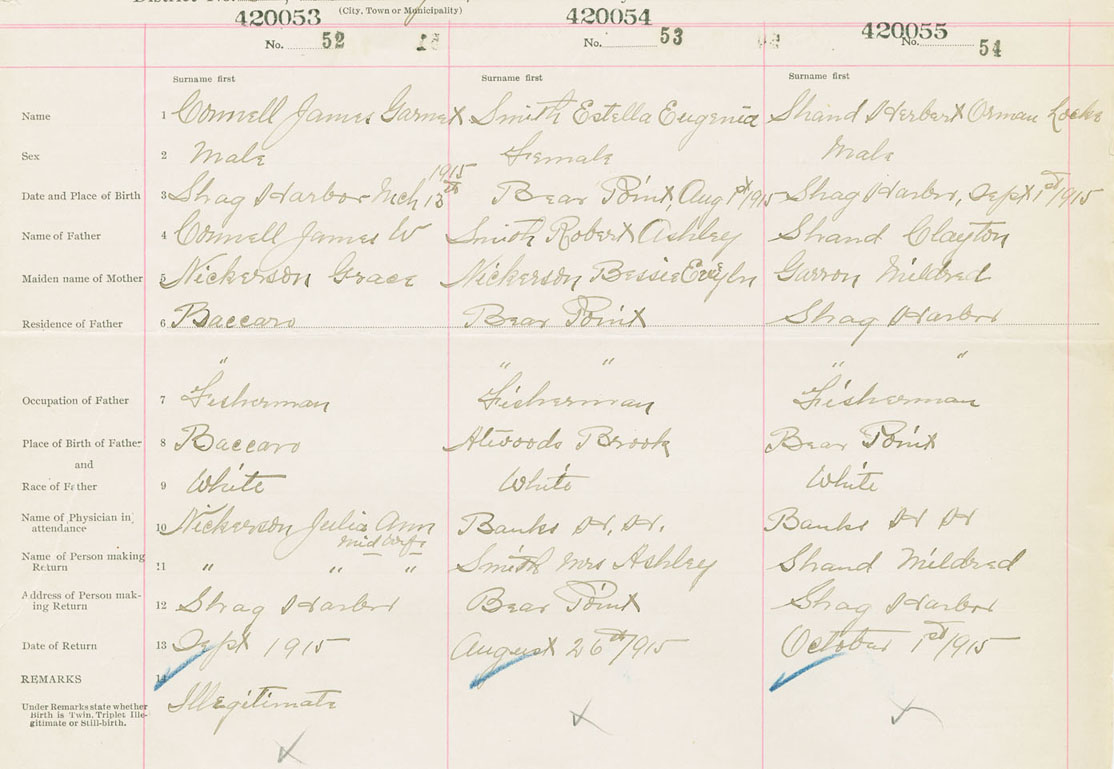 (City, Town or Municipality)
420053 420054 420055
No. 52 No. 53 No. 54
Surname first Surname first Surname first
Name 1 Connell James Garnet Smith Estella Eugenia Shand Herbert Orman Locke
Sex 2 Male Female Male
1915
Date and Place of Birth 3 Shag Harbor Mch 13th Bear Point, Aug 1st/1915 Shag Harbor, Sept 1st/1915
Name of Father 4 Connell James W Smith Robert Ashley Shand Clayton
Maiden name of Mother 5 Nickerson Grace Nickerson Bessie Evelyn Garron Mildred
Residence of Father 6 Baccaro Bear Point Shag Harbor
" " " " "
Occupation of Father 7 Fisherman Fisherman Fisherman
Place of Birth of Father 8 Baccaro Atwoods Brook Bear Point
and
Race of Father 9 White White White
Name of Physician in attendance 10 Nickerson Julia Ann Banks H. H. Banks H H
midwife
Name of Person making Return 11 " " " Smith Mrs Ashley Shand Mildred
Address of Person making Return 12 Shag Harbor Bear Point Shag Harbor
Date of Return 13 Sept 1915 August 26th/1915 October 1st/1915
REMARKS 14
Under Remarks state whether Illegitimate
Birth is Twin, Triplet, Ille-
gitimate or Still-birth.